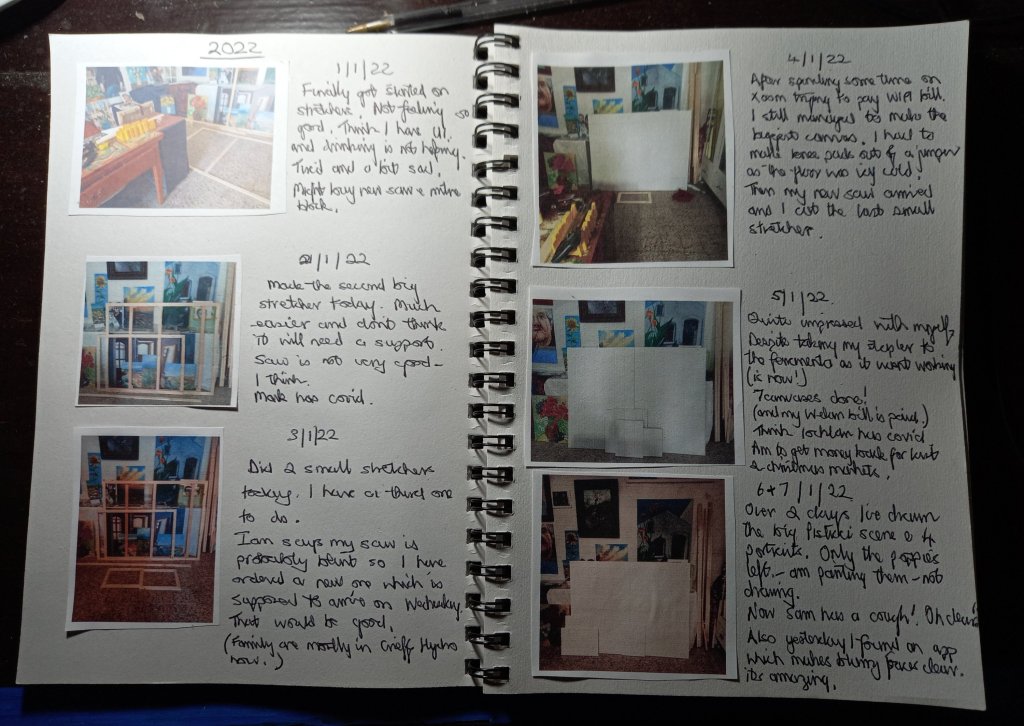 2022
1/1/22
Finally got started on
stretchers. Not feeling so
good. Think I have
and drinking is not helping.
Tired and a bit sad.
Might buy new saw & mitre
block.
2/1/22
Made the second big
stretcher today. Much
easier and dont think
it will need a support.
Saw is not very good -
I think.
Mark has covid.
3/1/22
Did 2 small stretchers
today. I have a third one
to do.
Iam says my saw is
probably blunt so I have
ordered a new one which is
supposed to arrive on Wednesday.
That would be good.
(Family are mostly in Crieff Hydro
now.)
4/1/22
After spending some time on
Zoom trying to pay WIFI bill.
I still managed to make the
biggest canvas. I had to
make knee pads out of a jumper
as the floor was icy cold.
Then my new saw arrived
and I cut the last small
stretcher.
5/1/22.
Quite impressed with myself.
Despite taking my stapler to
the ferramenta as it wasnt working
(is now!)
7 canvases done!
(and my bill is paid.)
Think lochlan has covid
Am to get money back for last
2 christmas markets.
6+7/1/22
Over 2 days I've drawn
the big Pisticci scene & 4
portraits. Only the poppies
left - am painting them - not
drawing.
Now Sam has a cough! Oh dear!
Also yesterday I found an app
which makes blurry faces clear.
its amazing.